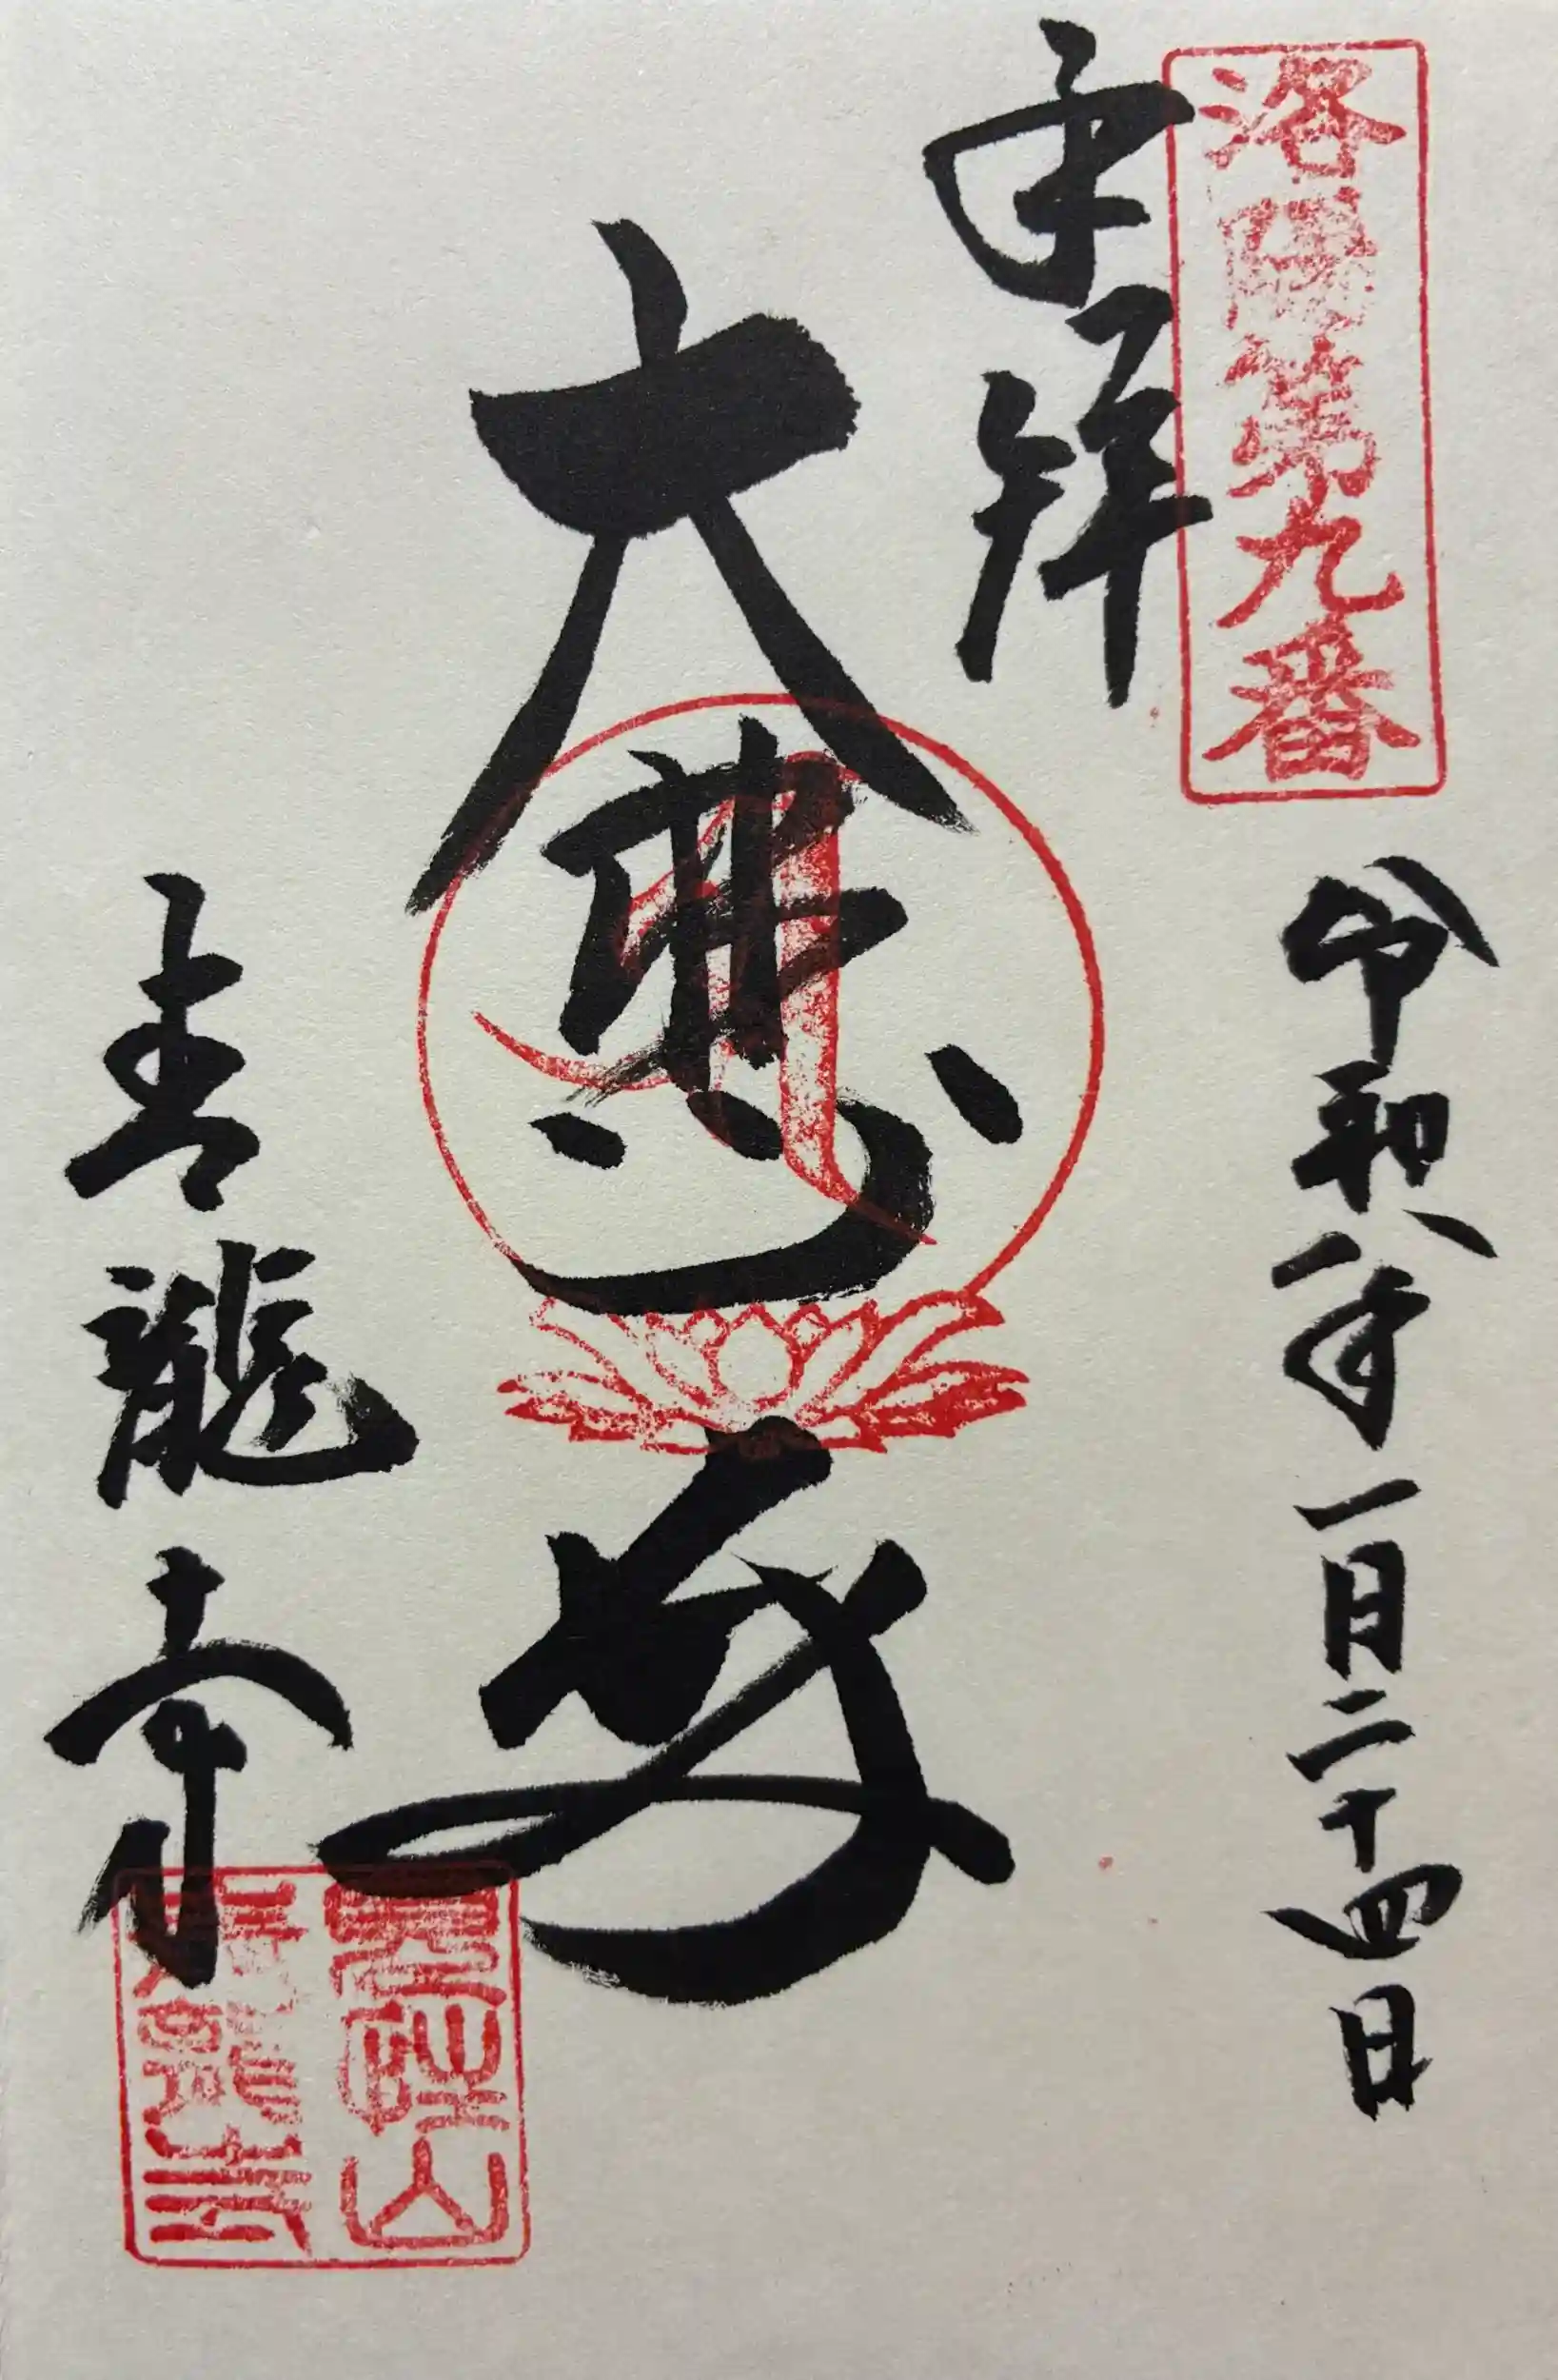 洛陽第九番
奉拝
令和八年一月二十四日
大悲殿
青龍寺
青龍寺